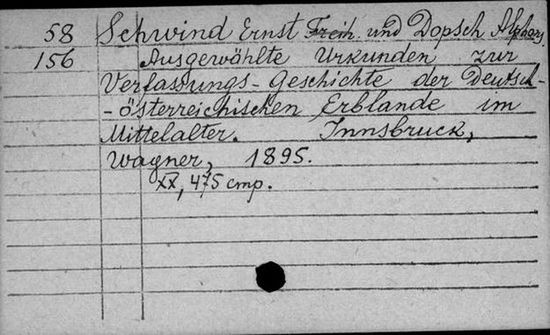 58 Schwind Ernst Freih. und Dopsch Alphons
156 Ausgewählte Urkunden zur
Verfassungs-Geschichte der Deutsch-
-österreichischen Erblande im
Mittelalter. Innsbruck,
Wagner, 1895.
XX, 475 cmp.